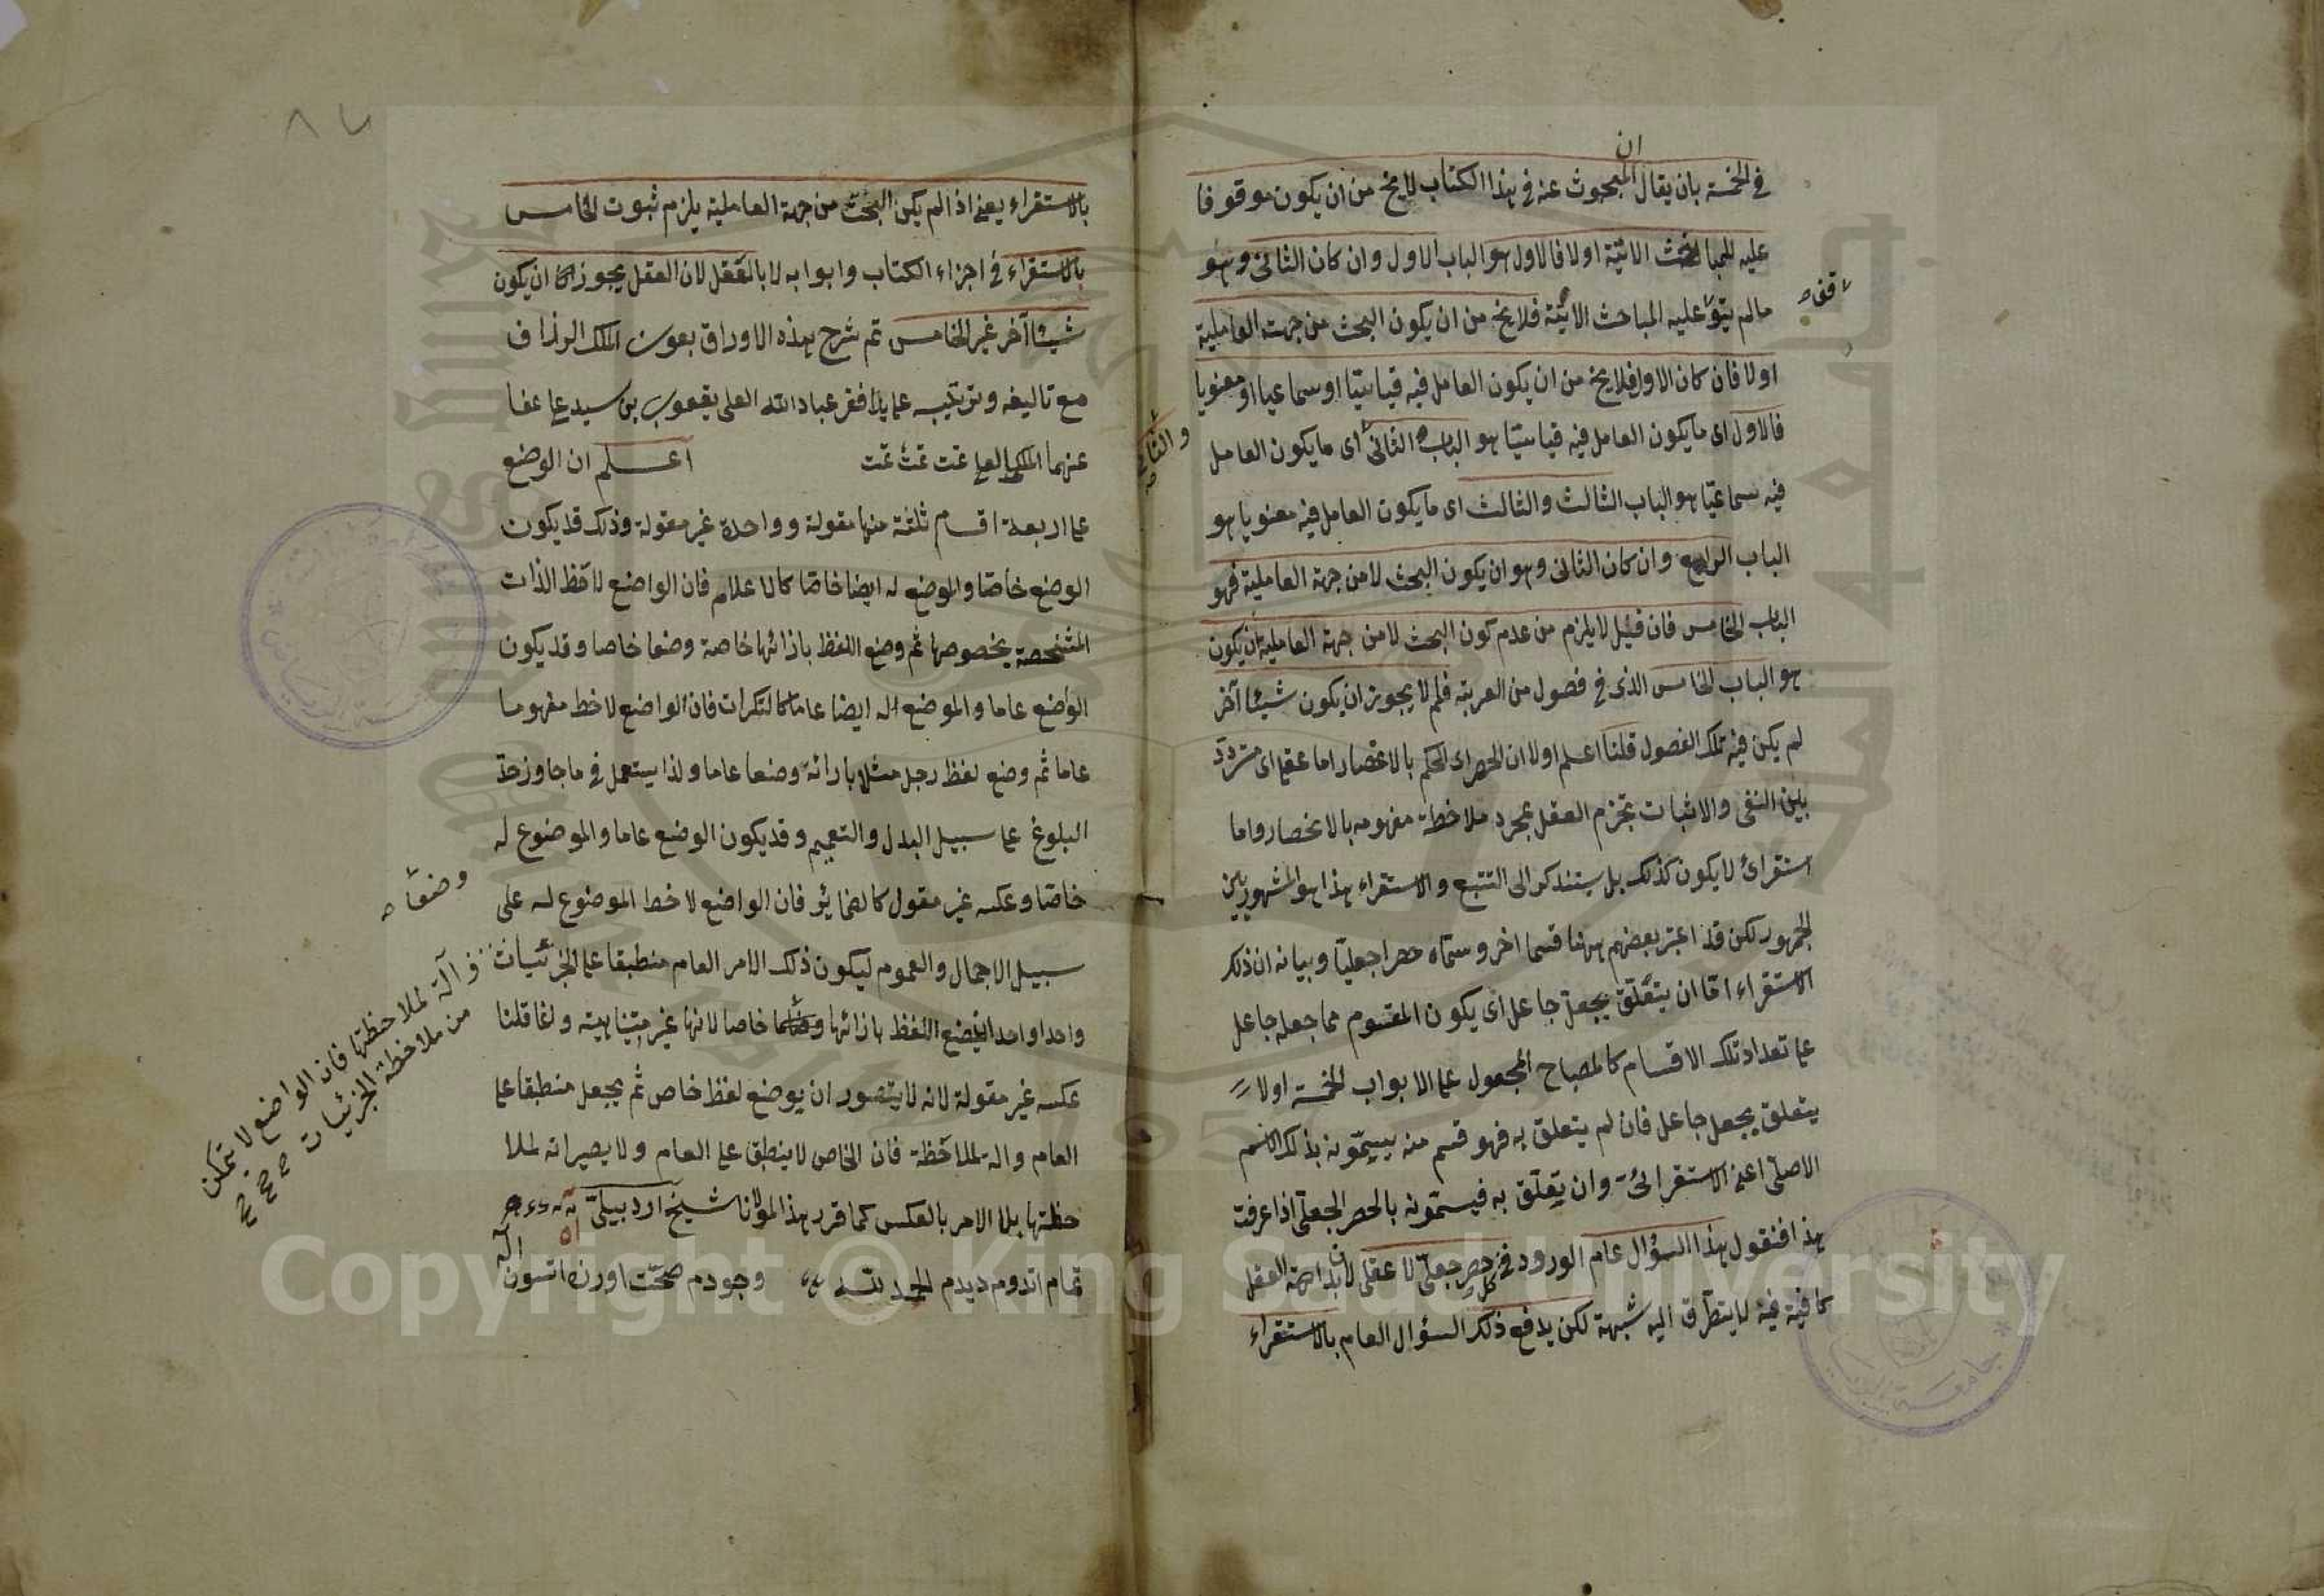 ان
في الخمسة بان يقال المبحوث عنه في هذا الكتاب لا يخ من ان يكون موقوفا
عليه للمباحث الاتية اولا فالاول هو الباب الاول وان كان الثاني وهو
مالم يتو عليه المباحث الاتية فلا يخ من ان يكون البحث من جهة العاملية
قف
اولا فان كان الاول فلا يخ من ان يكون العامل فيه قياسيا او سماعيا او معنويا
فالاول اى ما يكون العامل فيه قياسيا هو الباب الثاني اى ما يكون العامل
والثاني
فيه سماعيا هو الباب الثالث والثالث اى ما يكون العامل فيه معنويا هو
الباب الرابع وان كان الثاني وهو ان يكون البحث لا من جهة العاملية فهو
الباب الخامس فان قيل لا يلزم من عدم كون البحث لا من جهة العاملية ان يكون
هو الباب الخامس الذى في فصول من العربية فلم لا يجوز ان يكون شيئا آخر
لم يكن فيه تلك الفصول قلنا اعلم اولا ان الحصر اى الحكم بالانحصار اما عقلى اى متردد
بين النفى والاثبات يجزم العقل بمجرد ملاحظة مفهومه بالانحصار واما
استقرائ لا يكون كذلك بل يستند كر الى التتبع والاستقراء هذا هو المشهور بين
الجمهور لكن قد اعتبر بعضهم ههنا قسما اخر وسماه حصرا جعليا وبيانه ان ذلك
الاستقراء اما ان يتعلق بجعل جاعل اى يكون المقسوم مما جعله جاعل
على تعداد تلك الاقسام كالمصباح المجعول على الابواب الخمسة اولا
يتعلق بجعل جاعل فان لم يتعلق به فهو قسم منه يسمونه بذلك الاسم
الاصلى اعنى الاستقرائى وان يتعلق به فيسمونه بالحصر الجعلى اذا عرفت
هذا فنقول هذا السؤال عام الورود في كل حصر جعلى لا عقلى لان بداهة العقل
كافية فيه لا يتطرق اليه شبهة لكن يدفع ذلك السؤال العام بالاستقراء
٨٧
بالاستقراء يعنى اذا لم يكن البحث من جهة العاملية يلزم ثبوت الخامس
بالاستقراء في اجزاء الكتاب وابوابه لا بالعقل لان العقل يجوز ان يكون
شيئا آخر غير الخامس تم شرح هذه الاوراق بعون الملك الرزاق
مع تاليفه وتركيبه على يد افقر عباد الله العلى يعقوب بن سيد على عفا
عنهما الملك العلى تمت تمت تمت اعلم ان الوضع
على اربعة اقسام ثلثة منها مقولة وواحدة غير مقولة وذلك قد يكون
الوضع خاصا والموضع له ايضا خاصا كالاعلام فان الواضع لاحظ الذات
المشخصة بخصوصها ثم وضع اللفظ بازائها خاصة وضعا خاصا وقد يكون
الوضع عاما والموضع له ايضا عاما كالنكرات فان الواضع لاحظ مفهوما
عاما ثم وضع لفظ رجل مثلا بازائه وضعا عاما ولذا يستعمل في ما جاوز حد
البلوغ على سبيل البدل والتعميم وقد يكون الوضع عاما والموضوع له
خاصا وعكسه غير مقول كالضمائر فان الواضع لاحظ الموضوع له على
سبيل الاجمال والعموم ليكون ذلك الامر العام منطبقا على الجزئيات
واحدا واحدا ليضع اللفظ بازائها خاصا لانها غير متناهية وانما قلنا
وضعا
آلة لملاحظتها فان الواضع لا يتمكن
من ملاحظة الجزئيات
عكسه غير مقولة لانه لا يتصور ان يوضع لفظ خاص ثم يجعل منطبقا على
العام والة لملاحظة فان الخاص لا ينطبق على العام ولا يصير الة لملا
حظتها بل الامر بالعكس كما قرر هذا المولانا شيخ اردبيلى
تمام اتدوم ديدم الحمد لله وجودم صحت اوزره اتسون